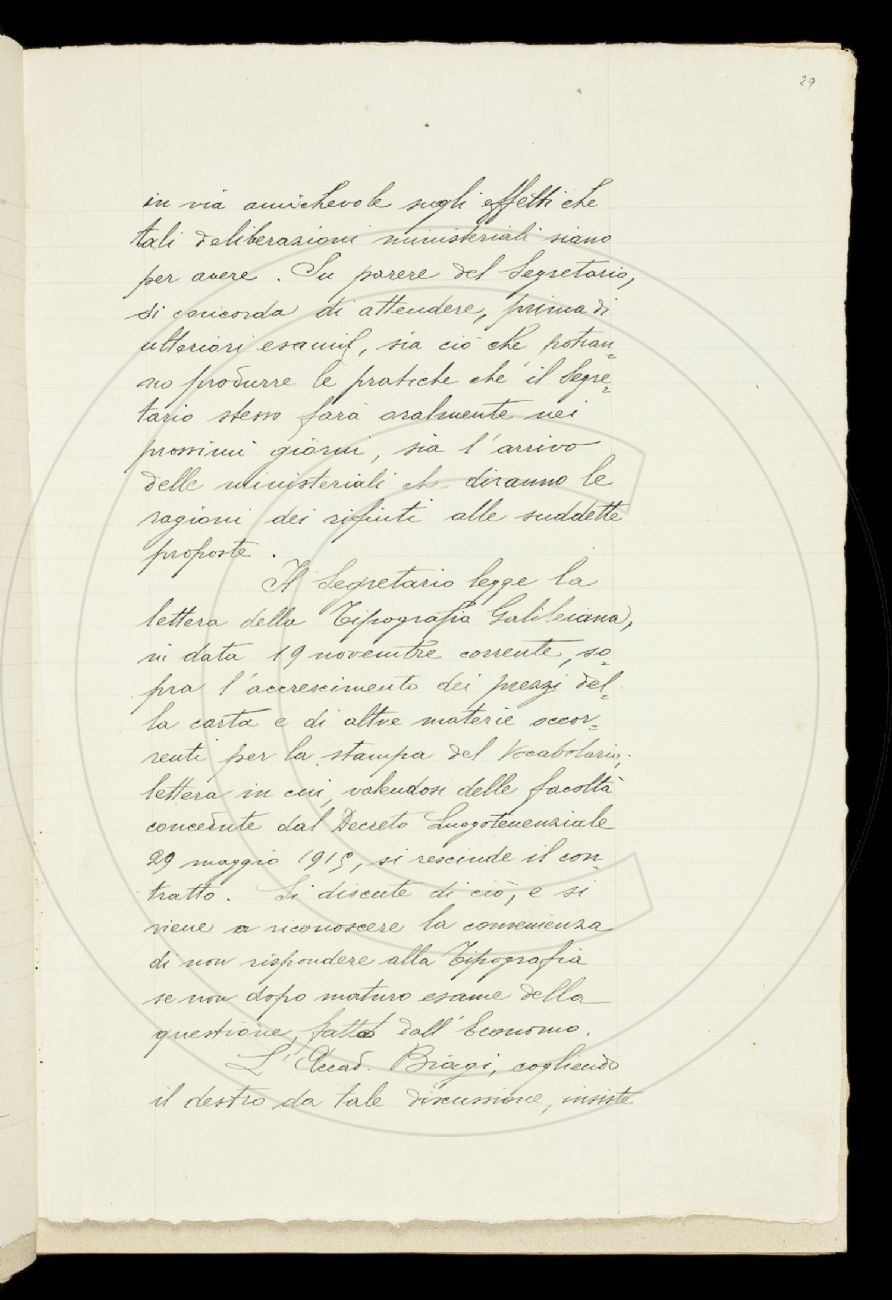 29
in via amichevole sugli effetti che
tali deliberazioni ministeriali siano
per avere. Su parere del Segretario,
si concorda di attendere, prima di
ulteriori esami, sia ciò che potran=
no produrre le pratiche che il Segre=
tario stesso farà oralmente nei
prossimi giorni, sia l'arrivo
delle ministeriali che diranno le
ragioni dei rifiuti alle suddette
proposte.
Il Segretario legge la
lettera della Tipografia Galileiana,
in data 19 novembre corrente, so=
pra l'accrescimento dei prezzi del=
la carta e di altre materie occor=
renti per la stampa del Vocabolario;
lettera in cui, valendosi delle facoltà
concedute dal Decreto Luogotenenziale
29 maggio 1915, si rescinde il con=
tratto. Si discute di ciò, e si
viene a riconoscere la convenienza
di non rispondere alla Tipografia
se non dopo maturo esame della
questione, fatto dall'Economo.
L'Accad. Biagi, cogliendo
il destro da tale discussione, insiste